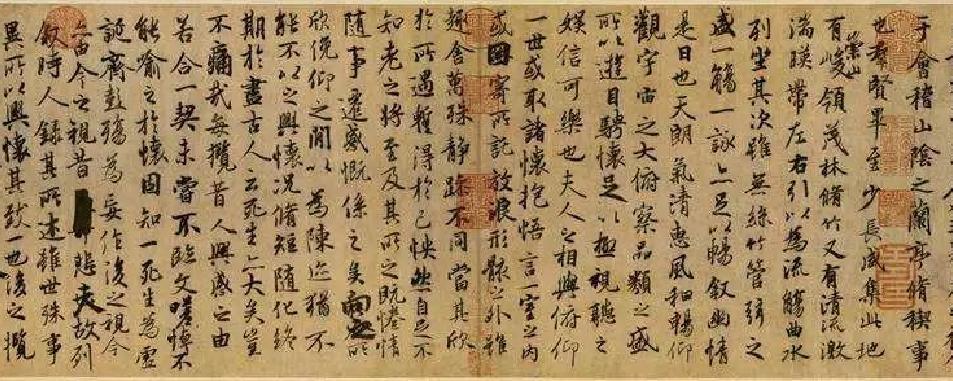 于會稽山陰之蘭亭脩稧事
也群賢畢至少長咸集此地
有崇山峻領茂林脩竹又有清流激
湍暎帶左右引以為流觴曲水
列坐其次雖無絲竹管弦之
盛一觴一詠亦足以暢敘幽情
是日也天朗氣清惠風和暢仰
觀宇宙之大俯察品類之盛
所以遊目騁懷足以極視聽之
娛信可樂也夫人之相與俯仰
一世或取諸懷抱悟言一室之內
或因寄所託放浪形骸之外雖
趣舍萬殊靜躁不同當其欣
於所遇蹔得於己怏然自足不
知老之將至及其所之既惓情
隨事遷感慨係之矣向之所
欣俛仰之閒以為陳迹猶不
能不以之興懷況脩短隨化終
期於盡古人云死生亦大矣豈
不痛哉每攬昔人興感之由
若合一契未嘗不臨文嗟悼不
能喻之於懷固知一死生為虛
誕齊彭殤為妄作後之視今
亦由今之視昔悲夫故列
敘時人錄其所述雖世殊事
異所以興懷其致一也後之攬